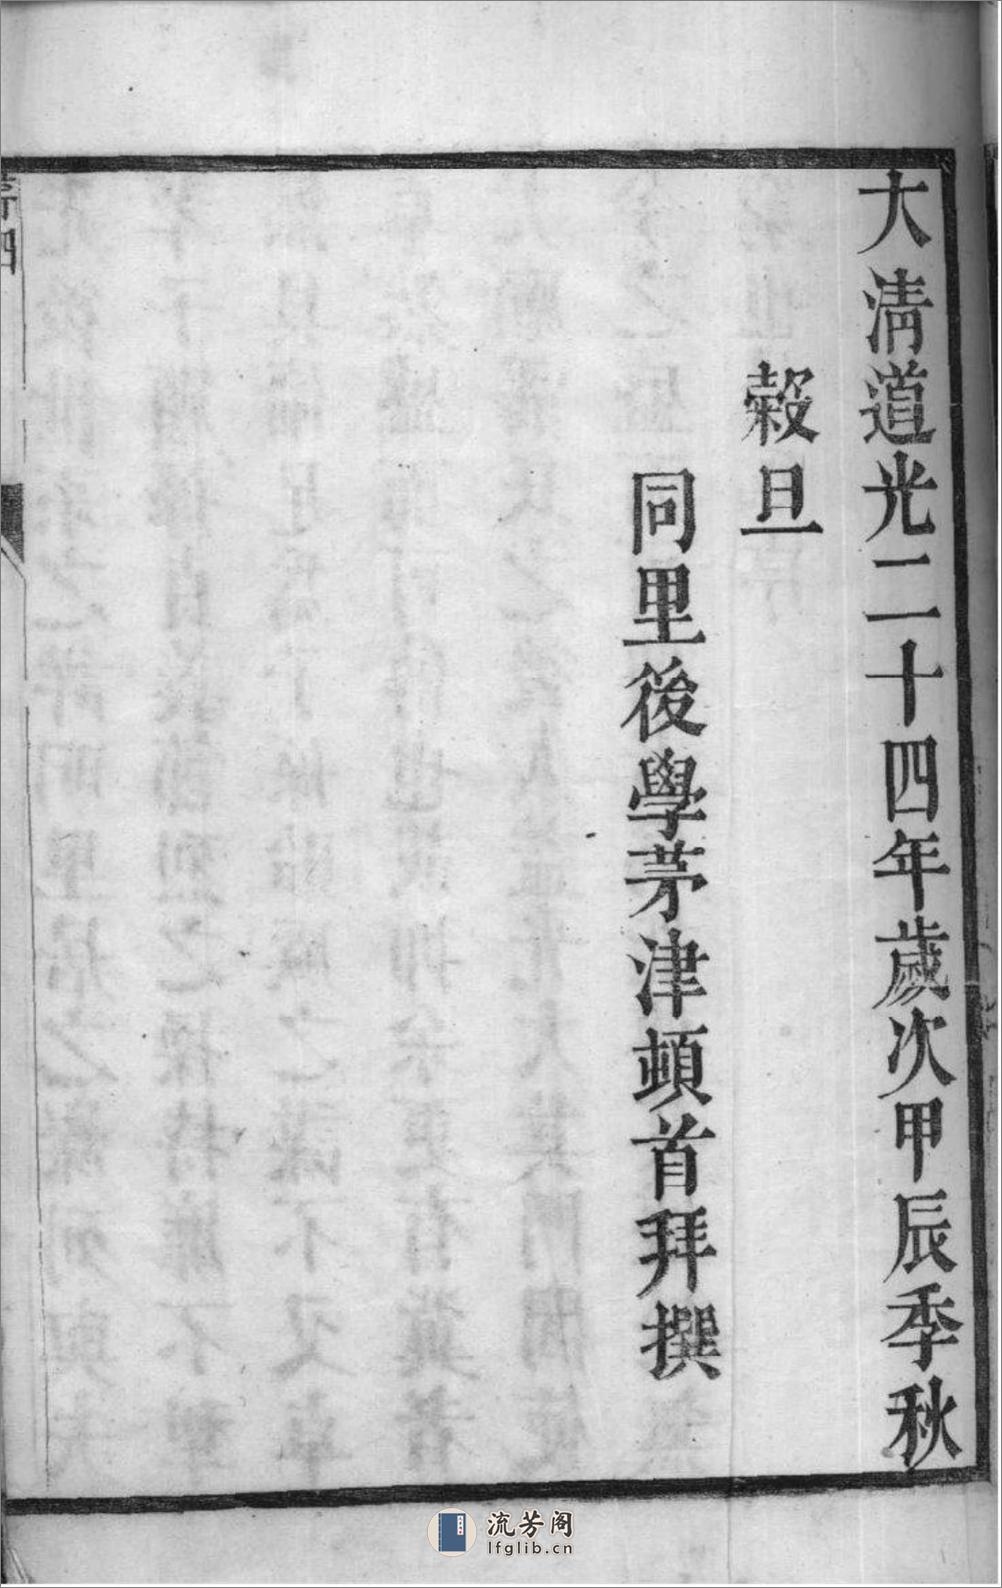 大清道光二十四年歲次甲辰季秋
穀旦
同里後學茅津頓首拜撰
四
流芳阁
lfglib.cn